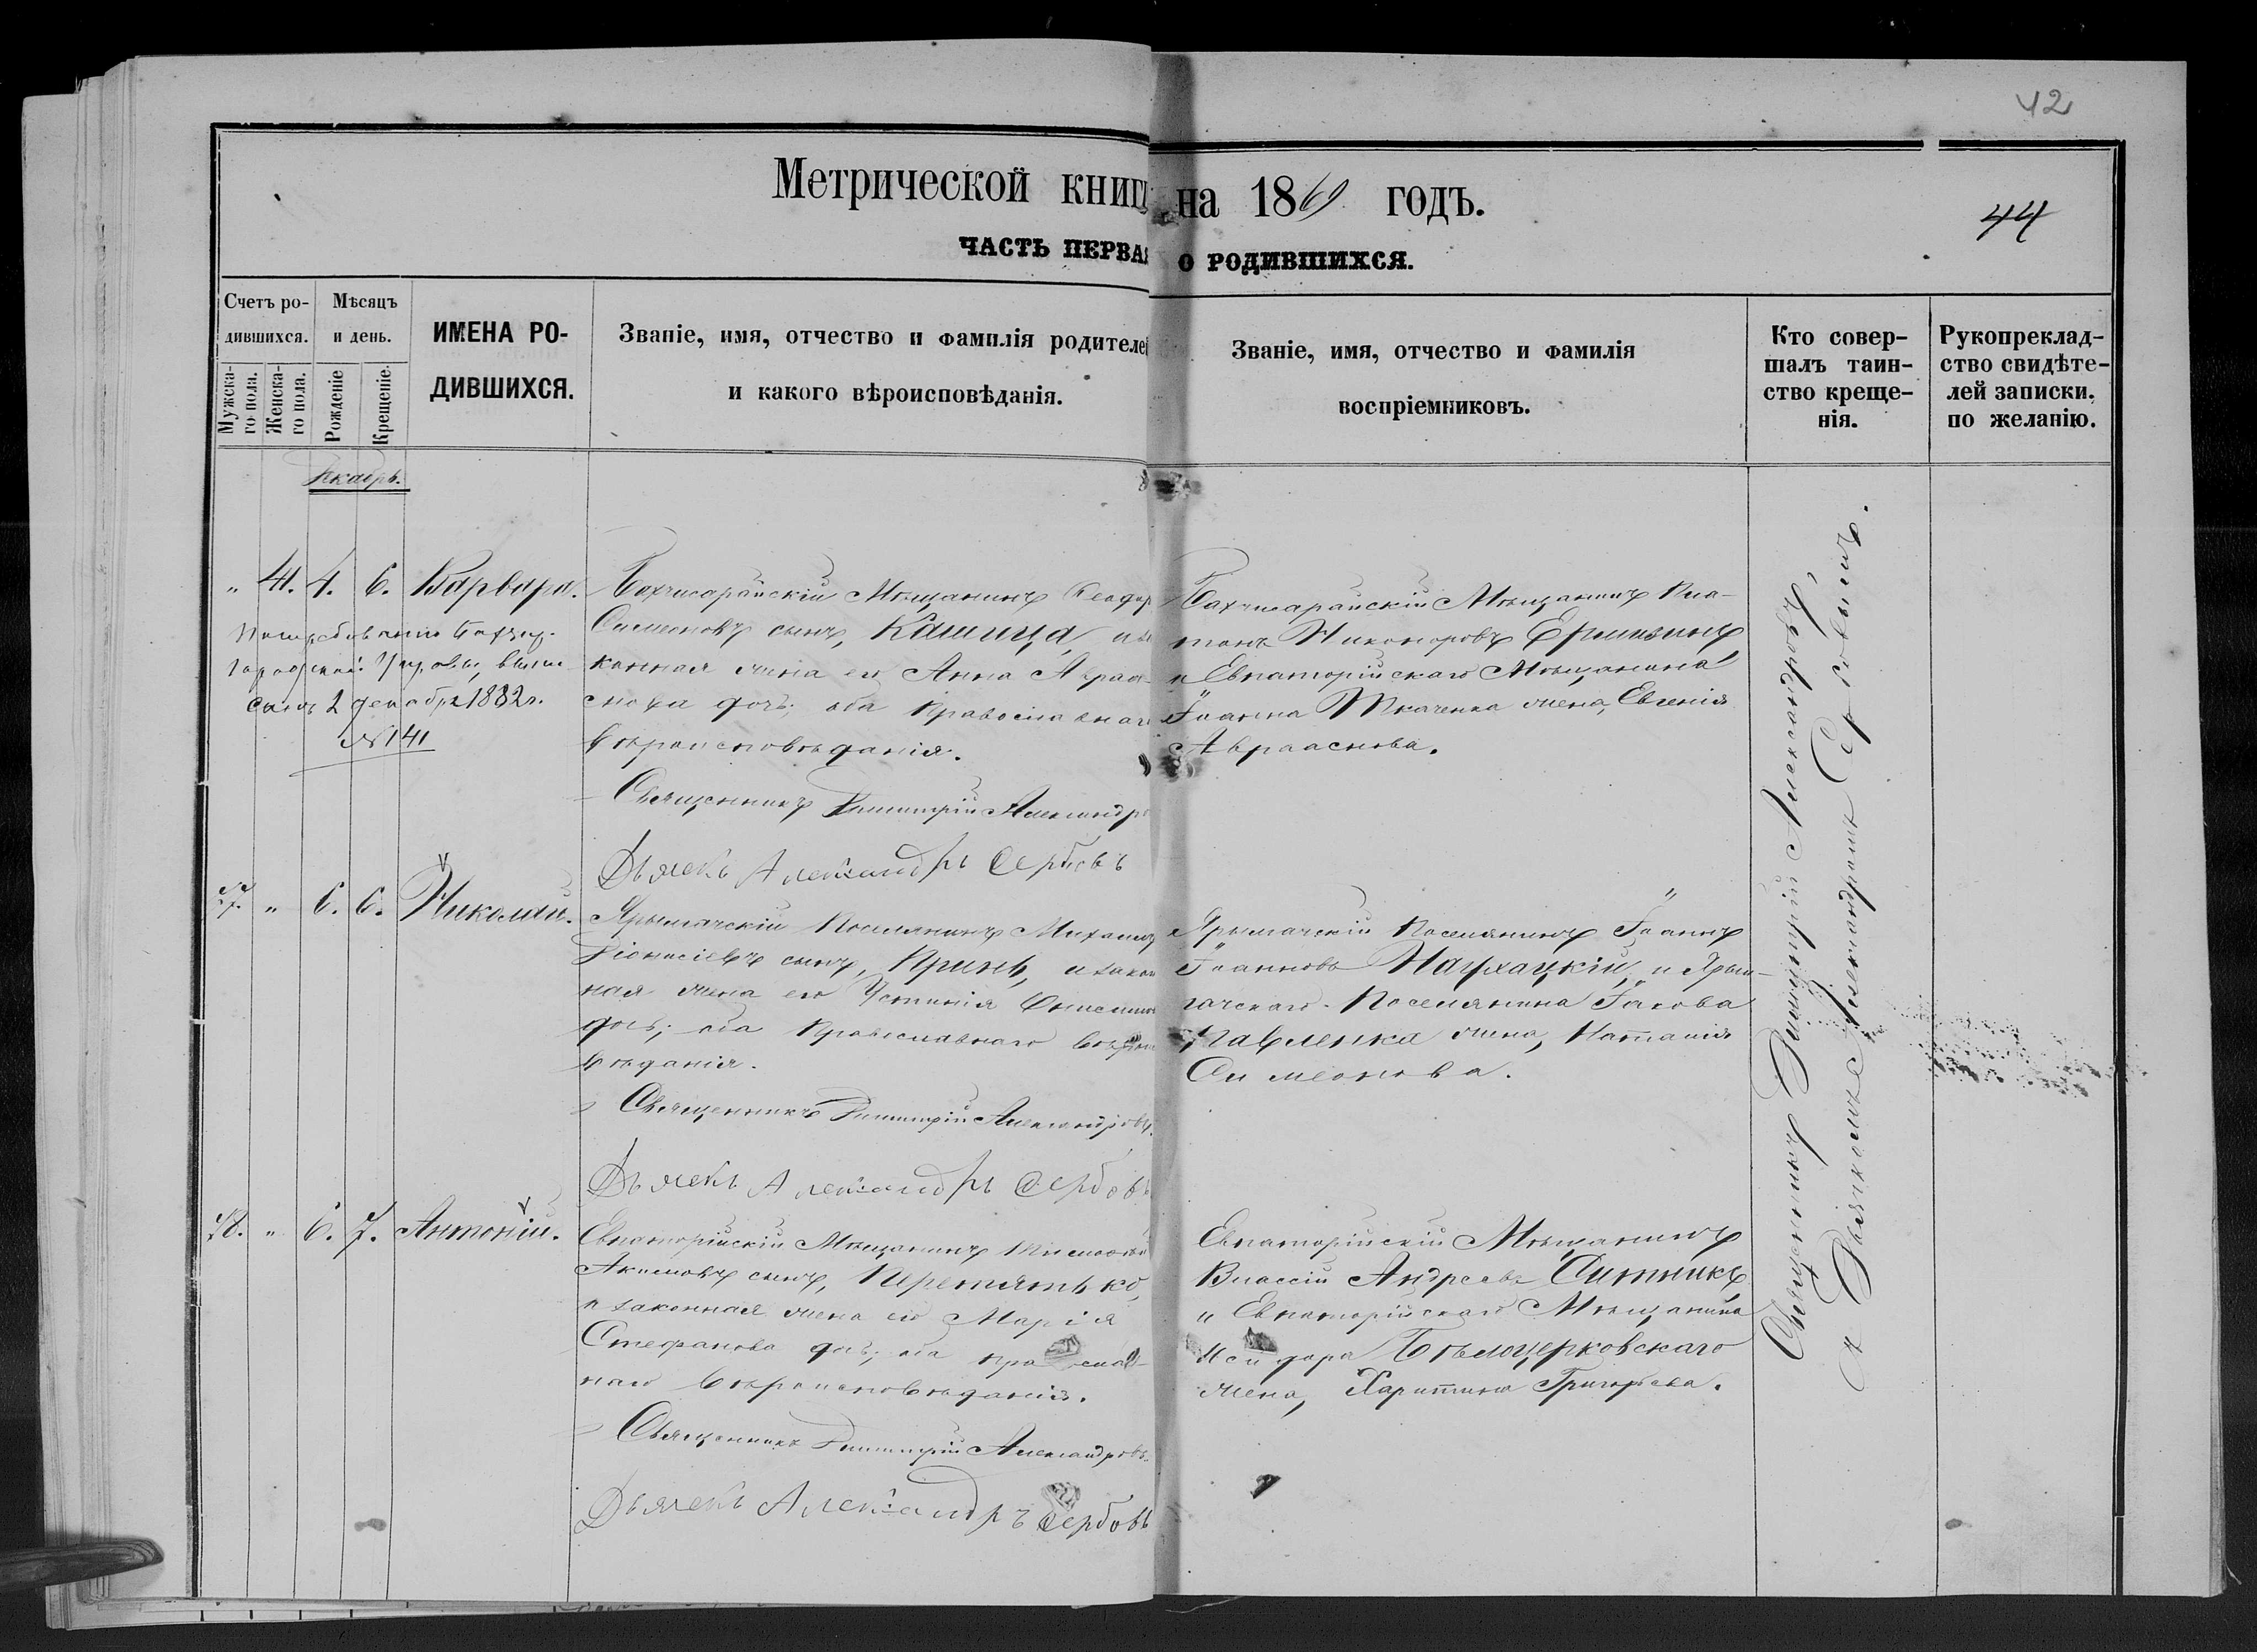 42
Метрической книги на 1869 годъ.
44
ЧАСТЬ ПЕРВАЯ О РОДИВШИХСЯ.
Счетъ родившихся.
Мужескаго пола.
Женскаго пола.
Мѣсяцъ и день.
Рожденіе
Крещеніе.
ИМЕНА РО-
ДИВШИХСЯ.
Званіе, имя, отчество и фамилія родителей
и какого вѣроисповѣданія.
Званіе, имя, отчество и фамилія
воспріемниковъ.
Кто совер-
шалъ таин-
ство креще-
нія.
Рукопреклад-
ство свидѣте-
лей записки.
по желанію.
Декабрь.
" 41. 4. 6. Варвара.
городской Управы,
2 декабря 1882 г.
№ 141
Бахчисарайскій Мѣщанинъ Ѳеодор
Симеоновъ сынъ, Кашица, и за
конная жена его Анна Авраа-
мова дочь; оба Православнаг
вѣроисповѣданія.
Священникъ Димитрій Александро
Дьячекъ Александръ Сербовъ
Бахчисарайскій Мѣщанинъ Пла-
тонъ Никоноровъ Ермизинъ
и Евпаторійскаго Мѣщанина
Іоанна Ткаченка жена, Евгенія
Авраамова.
" 6. 6. Николай.
Ярылгачскій Поселянинъ Михаилъ
Діонисіевъ сынъ, Принь, и закон
ная жена его Устинія Онисимо
дочь; оба Православнаго вѣроис
вѣданія.
Священникъ Димитрій Александровъ.
Дьячекъ Александръ Сербовъ
Ярылгачскій Поселянинъ Іоаннъ
Іоанновъ Наухацкій, и Ярыл-
гачскаго Поселянина Іакова
Павленка жена, Наталія
Симеонова.
48. " 6. 7. Антоній.
Евпаторійскій Мѣщанинъ
Акимовъ сынъ, Перетятько,
и законная жена его Марія
Стефанова дочь; оба Православ-
наго вѣроисповѣданія.
Священникъ Димитрій Александровъ.
Дьячекъ Александръ Сербовъ
Евпаторійскій Мѣщанинъ
Власій Андреевъ Ситникъ,
и Евпаторійскаго Мѣщанина
Исидора Бѣлоцерковскаго
жена, Харитина Григорьева.
Священникъ Димитрій Александровъ,
и Дьячкомъ Александромъ Сербовымъ.